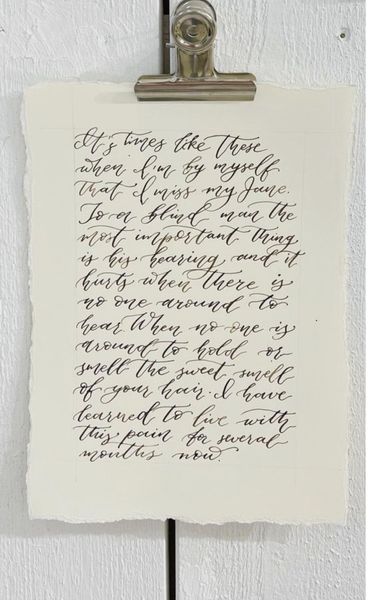 It's times like these
when I'm by myself
that I miss my June.
To a blind man the
most important thing
is his hearing and it
hurts when there is
no one around to
hear. When no one is
around to hold or
smell the sweet smell
of your hair. I have
learned to live with
this pain for several
months now.